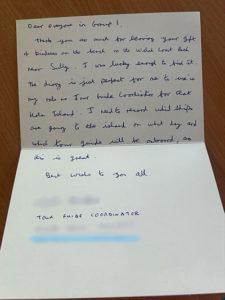 Dear everyone in Group 1,
Thank you so much for leaving your gift
of kindness on the bench on the Wales Coast Path
near Sully. I was lucky enough to find it.
The diary is just perfect for me to use in
my role as Tour Guide Coordinator for Flat
Holm Island. I need to record which ships
are going to the island on what day and
which tour guide will be onboard, so
this is great.
Best wishes to you all
TOUR GUIDE COORDINATOR